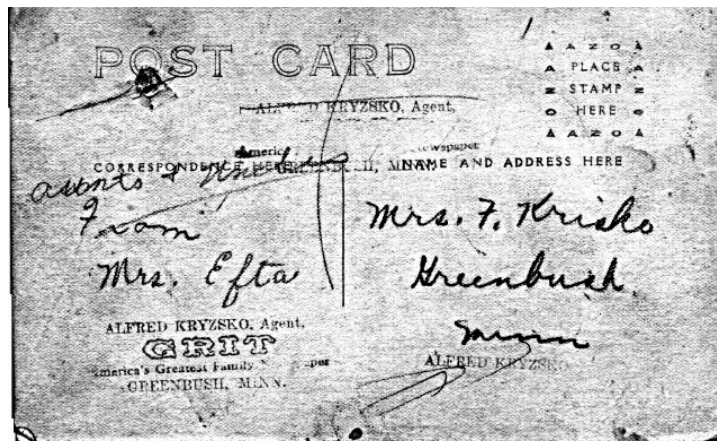 POST CARD
AZO
PLACE
STAMP
HERE
AZO
ALFRED KRYZSKO, Agent,
America Newspaper
CORRESPONDENCE HERE NAME AND ADDRESS HERE
GREENBUSH, MINN.
aunts &
From
Mrs. Efta
Mrs. F. Krisko
Greenbush
Minn
ALFRED KRYZSKO, Agent,
GRIT
America's Greatest Family paper
GREENBUSH, MINN.
ALFRED KRYZSKO